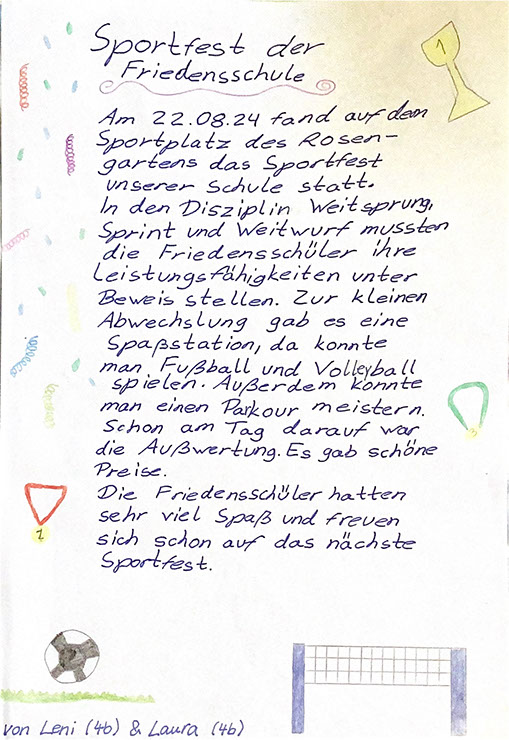 Sportfest der
Friedensschule
1
Am 22.08.24 fand auf dem
Sportplatz des Rosen-
gartens das Sportfest
unserer Schule statt.
In den Disziplin Weitsprung,
Sprint und Weitwurf mussten
die Friedensschüler ihre
Leistungsfähigkeiten unter
Beweis stellen. Zur kleinen
Abwechslung gab es eine
Spaßstation, da konnte
man Fußball und Volleyball
spielen. Außerdem konnte
man einen Parkour meistern.
Schon am Tag darauf war
die Außwertung. Es gab schöne
Preise.
Die Friedensschüler hatten
sehr viel Spaß und freuen
sich schon auf das nächste
Sportfest.
von Leni (4b) & Laura (4b)